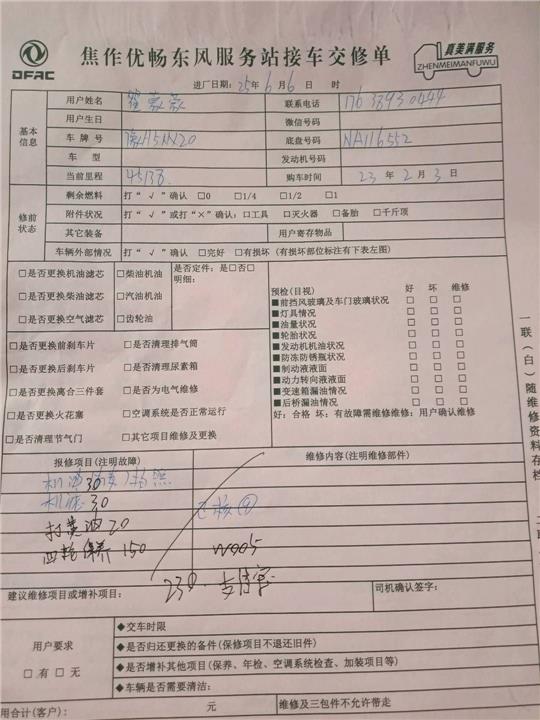 DFAC
焦作优畅东风服务站接车交修单
真美满服务
ZHENMEIMANFUWU
进厂日期：25年6月6日 时
基本信息
用户姓名
联系电话 17633930444
用户生日
微信号码
车牌号 豫H5NN20
底盘号码 NA116552
车型
发动机号码
当前里程 45138
购车时间 23年2月3日
修前状态
剩余燃料 打“√”确认 □0 □1/4 □1/2 □1
附件状况 打“√”或打“×”确认：□工具 □灭火器 □备胎 □千斤顶
其它装备
用户寄存物品
车辆外部情况 打“√”确认 □完好 □有损坏（有损坏部位标注有下表左图）
□是否更换机油滤芯 □柴油机油
□是否更换柴油滤芯 □汽油机油
□是否更换空气滤芯 □齿轮油
是否定件：是□否□
明细：
□是否更换前刹车片 □是否清理排气筒
□是否更换后刹车片 □是否清理尿素箱
□是否更换离合三件套 □是否为电气维修
□是否更换火花塞 □空调系统是否正常运行
□是否清理节气门 □其它项目维修及更换
预检(目视) 好 坏 维修
■前挡风玻璃及车门玻璃状况 □ □ □
■灯具情况 □ □ □
■油量状况 □ □ □
■轮胎状况 □ □ □
■发动机机油状况 □ □ □
■防冻防锈瓶状况 □ □ □
■制动液液面 □ □ □
■动力转向液液面 □ □ □
■变速箱漏油情况 □ □ □
■后桥漏油情况 □ □ □
好：合格 坏：有故障需维修维修：用户确认维修
一联（白）随维修资料存档
报修项目(注明故障)
维修内容(注明维修部件)
30
机滤 30
打黄油 20
四轮保养 150
W005
230.
建议维修项目或增补项目：
司机确认签字：
用户要求
□有 □无
◆交车时限
◆是否归还更换的备件(保修项目不退还旧件)
◆是否增补其他项目(保养、年检、空调系统检查、加装项目等)
◆车辆是否需要清洁：
用合计(客户)： 元
维修及三包件不允许带走